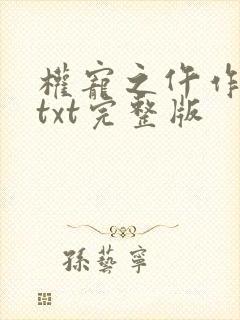 權寵之仵作
txt完整版
孫藝寧